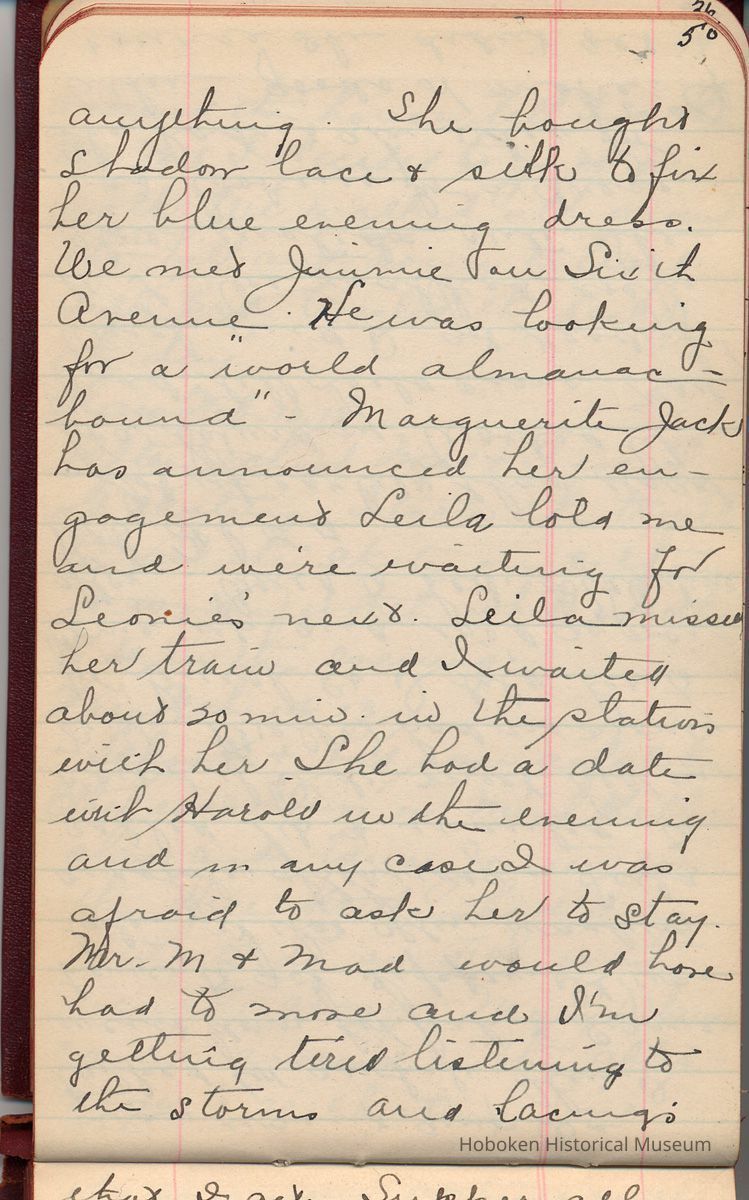 26.
50
anything. She bought
shadow lace & silk to fix
her blue evening dress.
We met Jimmie on Sixth
Avenue. He was looking
for a "world almanac -
bound" - Marguerite Jack
has announced her en-
gagement Leila told me
and we're waiting for
Leonie's next. Leila missed
her train and I waited
about 20 min. in the station
with her. She had a date
with Harold in the evening
and in any case I was
afraid to ask her to stay.
Mr. M & Mad would have
had to move and I'm
getting tired listening to
the storms and lacings
Hoboken Historical Museum
that I get. Supper